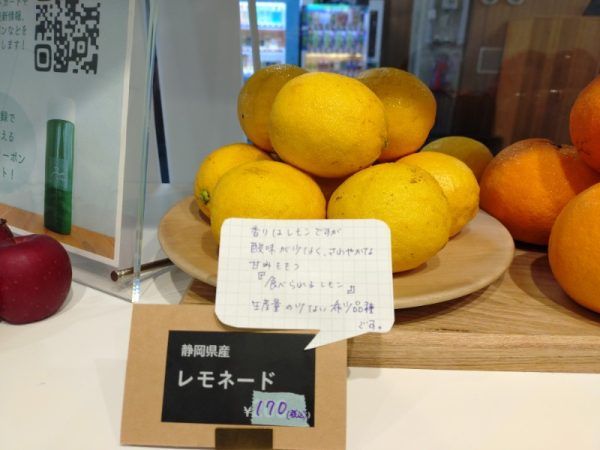 新情報、
ンなどを
します！
録で
える
ーポン
ト！
香りはレモンですが
酸味が少なく、さわやかな
甘みをもつ
『食べられるレモン』
生産量の少ない希少品種
です。
静岡県産
レモネード
¥170(税込)